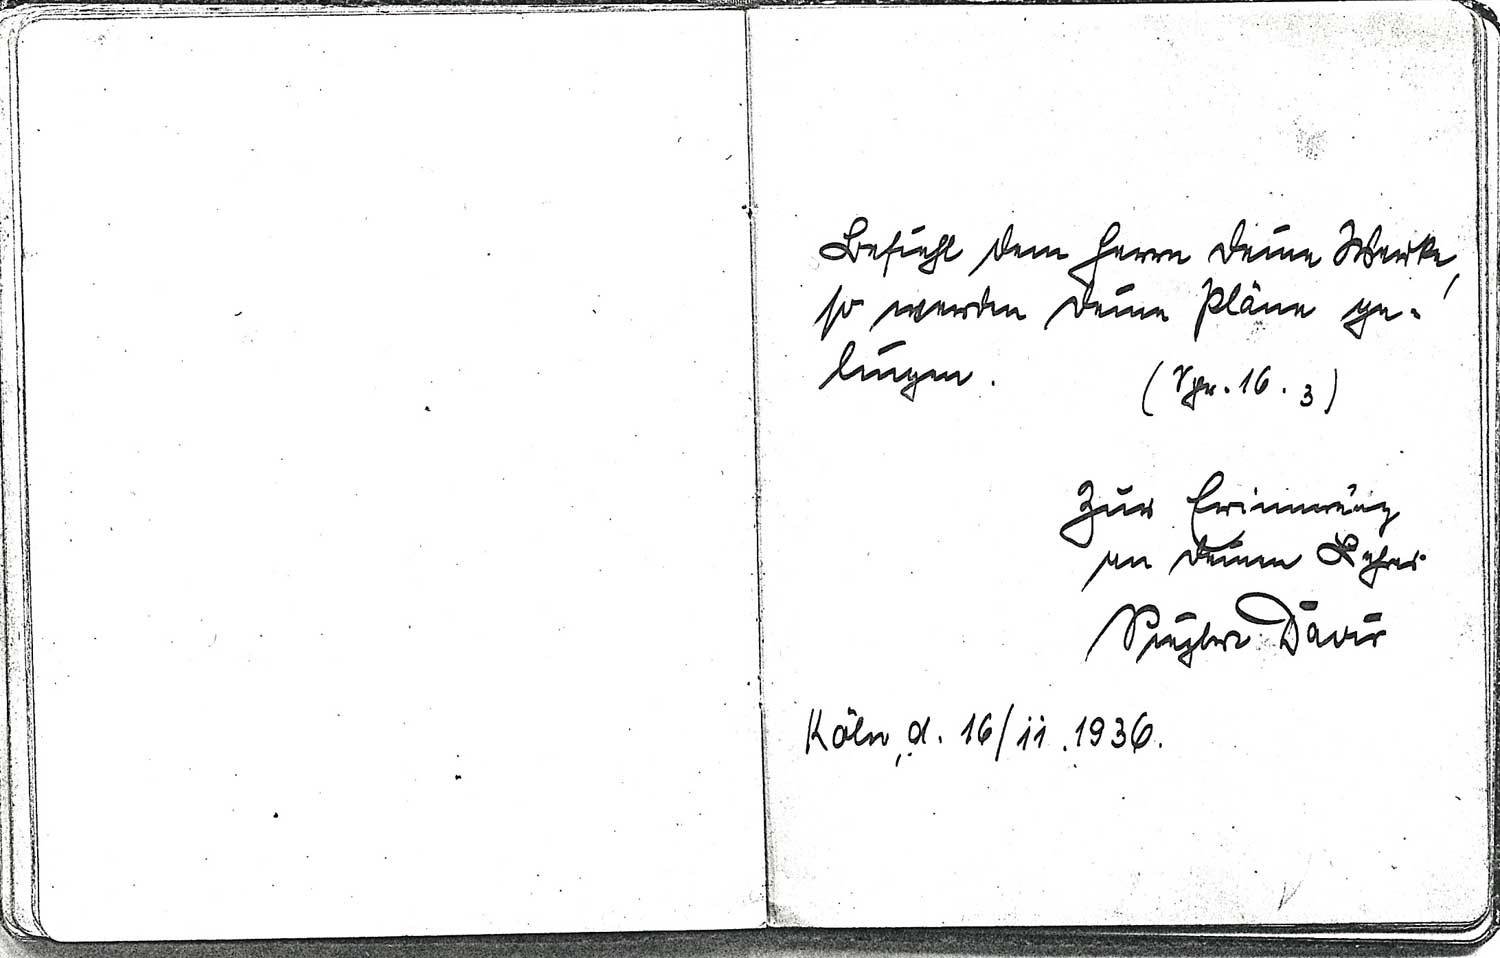 Befiehl dem Herrn deine Werke,
so werden deine Pläne ge-
lingen. (Spr. 16. 3)
Zur Erinnerung
an deinen Lehrer
David
Köln, d. 16/ii.1936.